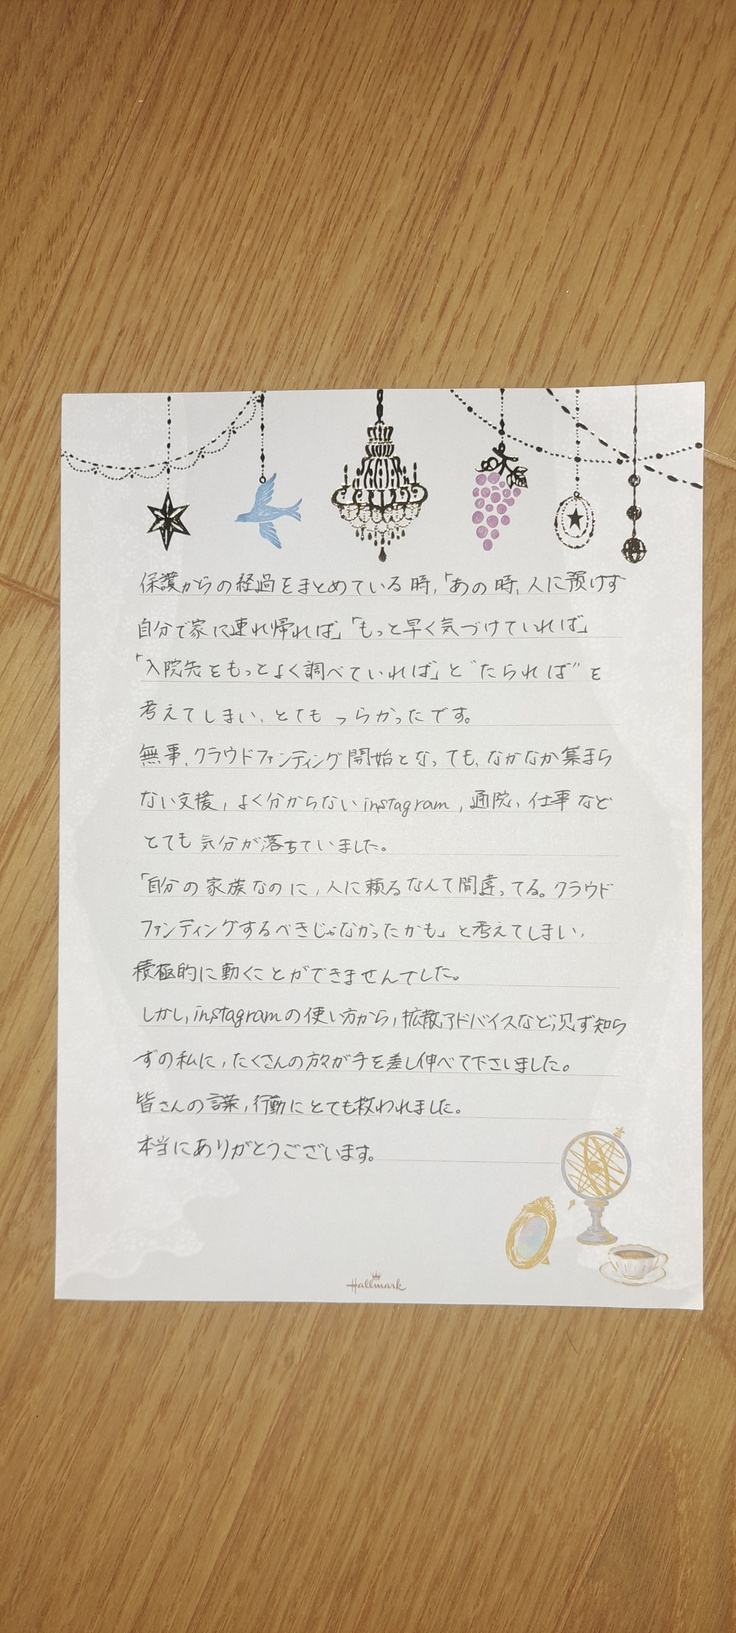 保護からの経過をまとめている時,「あの時,人に預けず
自分で家に連れ帰れば」「もっと早く気づけていれば」
「入院先をもっとよく調べていれば」と"たられば"を
考えてしまい、とてもつらかったです。
無事、クラウドファンティング開始となっても、なかなか集まら
ない支援,よく分からないinstagram,通院、仕事など
とても気分が落ちていました。
「自分の家族なのに,人に頼るなんて間違ってる。クラウド
ファンティングするべきじゃなかったかも」と考えてしまい,
積極的に動くことができませんでした。
しかし,instagramの使い方から,拡散アドバイスなど,見ず知ら
ずの私に,たくさんの方々が手を差し伸べて下さいました。
皆さんの言葉,行動にとても救われました。
本当にありがとうございます。
Hallmark